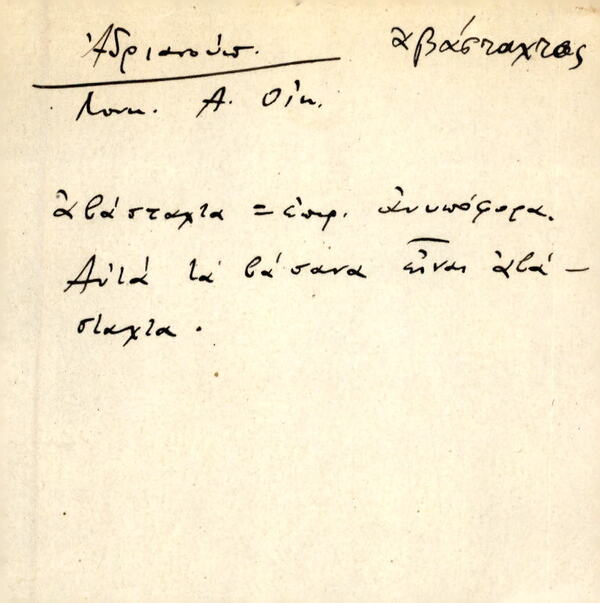 Ἀδριανούπ. ἀβάσταχτος
Λουκ. Α. Οἰκ.
ἀβάσταχτα = ἐπιρ. ἀνυπόφορα.
Αὐτά τά βάσανα εἶναι ἀβά–
σταχτα.